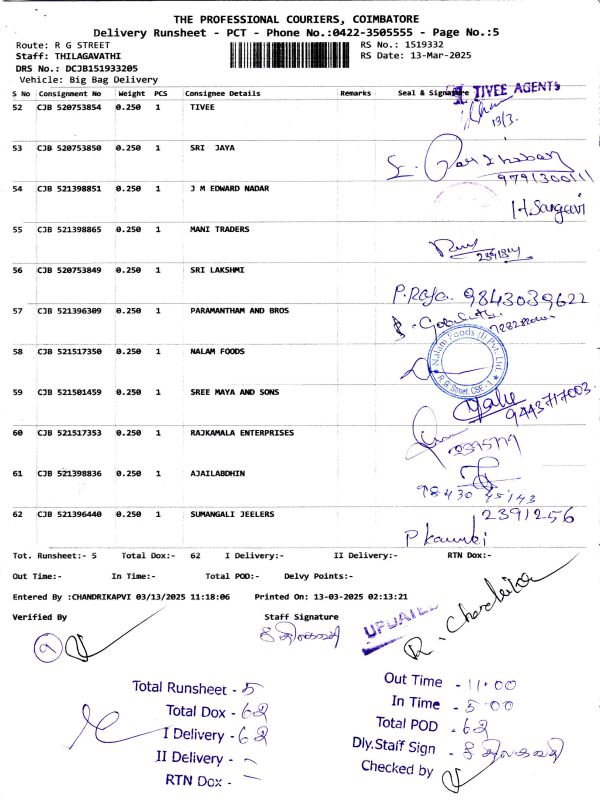 THE PROFESSIONAL COURIERS, COIMBATORE
Delivery Runsheet - PCT - Phone No.:0422-3505555 - Page No.:5
Route: R G STREET
RS No.: 1519332
Staff: THILAGAVATHI
RS Date: 13-Mar-2025
DRS No.: DCJB151933205
Vehicle: Big Bag Delivery
S No Consignment No Weight PCS Consignee Details Remarks Seal & Signature
TIVEE AGENTS
52 CJB 520753854 0.250 1 TIVEE
13/3.
53 CJB 520753850 0.250 1 SRI JAYA
9791300111
54 CJB 521398851 0.250 1 J M EDWARD NADAR
H.Sangavi
55 CJB 521398865 0.250 1 MANI TRADERS
56 CJB 520753849 0.250 1 SRI LAKSHMI
P.Raja. 9843039622
57 CJB 521396309 0.250 1 PARAMANTHAM AND BROS
58 CJB 521517350 0.250 1 NALAM FOODS
Nalam Foods (I) Pvt. Ltd.
R G Street, CBE - 1
59 CJB 521501459 0.250 1 SREE MAYA AND SONS
9443717003.
60 CJB 521517353 0.250 1 RAJKAMALA ENTERPRISES
61 CJB 521398836 0.250 1 AJAILABDHIN
98430 45143
62 CJB 521396440 0.250 1 SUMANGALI JEELERS
2391256
Tot. Runsheet:- 5 Total Dox:- 62 I Delivery:- II Delivery:- RTN Dox:-
Out Time:- In Time:- Total POD:- Delvy Points:-
Entered By :CHANDRIKAPVI 03/13/2025 11:18:06 Printed On: 13-03-2025 02:13:21
Verified By Staff Signature
UPDATED
R. Chandrika
9
Total Runsheet - 5
Total Dox - 62
I Delivery - 62
II Delivery -
RTN Dox -
Out Time - 11.00
In Time - 5.00
Total POD - 62
Dly.Staff Sign -
Checked by